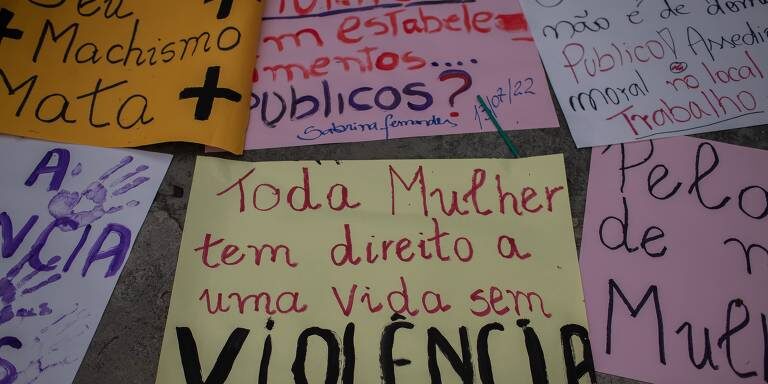 Seu +
+ Machismo
Mata +
em estabele
mentos....
PÚBLICOS?
Sabrina Fernandes 13/07/22
não é de
Público / Assedi
moral no local
Trabalho
A
VCIA
S
Toda Mulher
tem direito a
uma vida sem
VIOLÊNCIA
Pelo
de
Mul